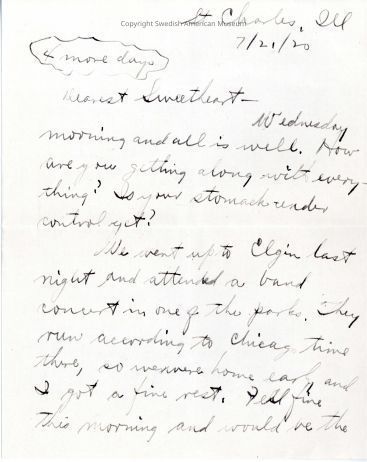 Copyright Swedish American Museum
St Charles, Ill
7/21/20
4 more days
Dearest Sweetheart—
Wednesday
morning and all is well. How
are you getting along with every-
thing? Is your stomach under
control yet?
We went up to Elgin last
night and attended a band
concert in one of the parks. They
run according to Chicago time
there, so we were home early and
I got a fine rest. Feel fine
this morning and would be the